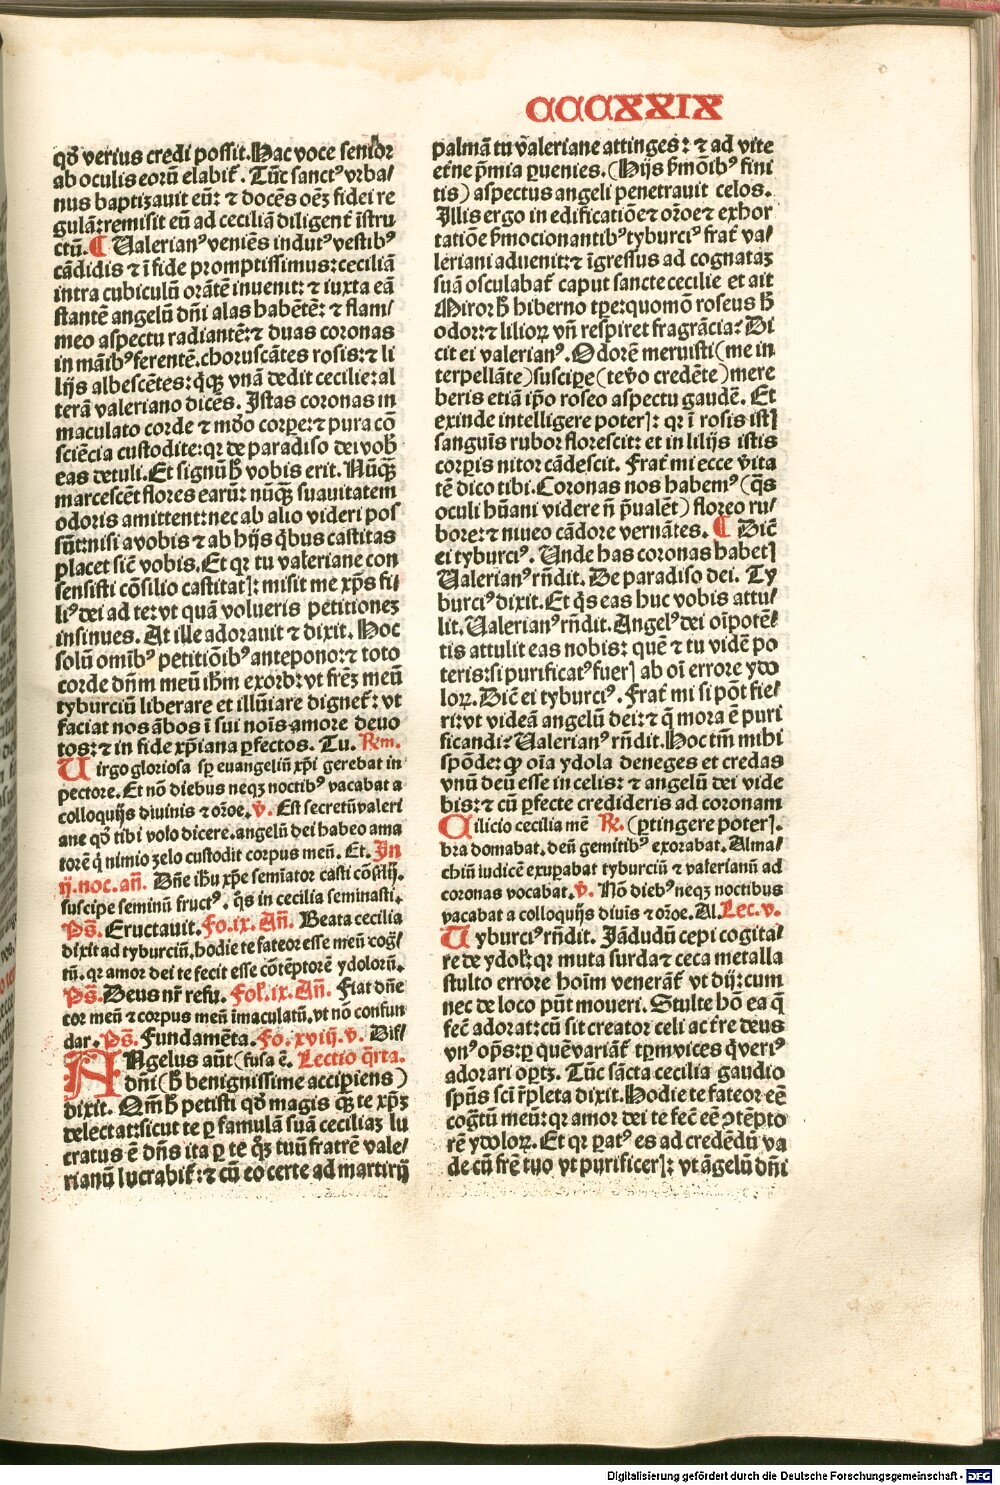 CCCCXXIX
qđ verius credi possit. Hac voce senior
ab oculis eorū elabit᷑. Tūc sanctꝰ vrba/
nus baptizauit eū: ⁊ docēs oēs fidei re
gulā: remisit eū ad ceciliā diligent᷑ īstru
ctū. ¶ Ualerianꝰ veniēs indutꝰ vestibꝰ
cādidis ⁊ ī fide promptissimus: ceciliā
intra cubiculū orātē inuenit: ⁊ iuxta eā
stantē angelū dn̄i alas habētē: ⁊ flam/
meo aspectu radiantē: ⁊ duas coronas
in māibꝰ ferentē. choruscātes rosis: ⁊ li
lijs albescētes: q̄ꝝ vnā dedit cecilie: al
terā valeriano dicēs. Istas coronas in
maculato corde ⁊ mūdo corꝑe: ⁊ pura cō
sciēcia custodite: qꝛ de paradiso dei vob̄
eas detuli. Et signū h̄ vobis erit. Nūqꝫ
marcescēt flores earū: nūqꝫ suauitatem
odoris amittent: nec ab alio videri pos
sūt: nisi a vobis ⁊ ab hijs qꝰbus castitas
placet sic̄ vobis. Et qꝛ tu valeriane con
sensisti cōsilio castitatꝭ: misit me xp̄s fi/
liꝰ dei ad te: vt quā volueris petitionez
insinues. At ille adorauit ⁊ dixit. Hoc
solū om̄ibꝰ petitiōibꝰ antepono: ⁊ toto
corde dn̄m meū ihm̄ exord: vt frēz meū
tyburciū liberare et illūiare dignet᷑: vt
faciat nos ābos ī sui noīs amore deuo
tos: ⁊ in fide xp̄iana ꝑfectos. Tu. Rm.
Uirgo gloriosa sp̄ euangeliū xp̄i gerebat in
pectore. Et nō diebus neqꝫ noctibꝰ vacabat a
colloquijs diuinis ⁊ or̄oe. v. Est secretū valeri
ane qđ tibi volo dicere. angelū dei habeo ama
torē q̄ nimio zelo custodit corpus meū. Et. In
ij. noc. an̄. Dn̄e ihu xp̄e semīator casti cōsilij.
suscipe seminū fructꝰ. q̄s in cecilia seminasti.
Ps̄. Eructauit. Fo. ix. An̄. Beata cecilia
dixit ad tyburciū. hodie te fateor esse meū coḡ/
tū. qꝛ amor dei te fecit esse cōtēptorē ydolorū.
Ps̄. Deus nr̄ refu. Fol. ix. An̄. Fiat dn̄e
cor meū ⁊ corpus meū īmaculatū. vt nō confun
dar. Ps̄. Fundamēta. Fo. xviij. v. Dif/
ANgelus aūt (fusa ē. Lectio q̄rta.
dn̄i (h̄ benignissime accipiens)
dixit. Qm̄ h̄ petisti qđ magis qꝫ te xp̄z
delectat: sicut te ꝑ famulā suā ceciliaz lu
cratus ē dn̄s ita ꝑ te qꝫ tuū fratrē vale/
rianū lucrabit᷑: ⁊ cū eo certe ad martirij
palmā tu v̄aleriane attinges: ⁊ ad vite
et̄ne p̄mia ꝑuenies. (Hijs ꝑmōibꝰ fini
tis) aspectus angeli penetrauit celos.
Illis ergo in edificatiōe ⁊ or̄oe ⁊ exhor
tatiōe ꝑmocionantibꝰ tyburciꝰ frat᷑ va/
leriani aduenit: ⁊ īgressus ad cognataz
suā osculabat᷑ caput sancte cecilie et ait
Miror: h̄ hiberno tꝑe: quomō roseus h̄
odor: ⁊ lilioꝝ vn̄ respiret fragrācia: Di
cit ei valerianꝰ. Odorē meruisti (me in
terpellāte) suscipe (te v̄o credēte) mere
beris etiā ip̄o roseo aspectu gaudē. Et
exinde intelligere poterꝭ: qꝛ ī rosis istꝭ
sanguīs rubor florescit: et in lilijs istis
corꝑis nitor cādescit. Frat᷑ mi ecce v̄ita
tē dico tibi. Coronas nos habemꝰ (q̄s
oculi hūani videre n̄ p̄ualēt) floreo ru/
bore: ⁊ niueo cādore vernātes. ¶ Dic̄
ei tyburciꝰ. Unde has coronas habetꝭ
Ualerianꝰ rn̄dit. De paradiso dei. Ty
burciꝰ dixit. Et q̄s eas huc vobis attu/
lit. Ualerianꝰ rn̄dit. Angelꝰ dei oīpotē/
tis attulit eas nobis: quē ⁊ tu vidē po
teris: si purificatꝰ fuerꝭ ab oī errore ydo
loꝝ. Dic̄ ei tyburciꝰ. Frat᷑ mi si pōt fie/
ri: vt videā angelū dei: ⁊ q̄ mora ē puri
ficandi: Ualerianꝰ rn̄dit. Hoc tm̄ mihi
spōde: ꝙ oīa ydola deneges et credas
vnū deū esse in celis: ⁊ angelū dei vide
bis: ⁊ cū ꝑfecte credideris ad coronam
Cilicio cecilia mē Rr. (ꝑtingere poterꝭ.
bra domabat. deū gemitibꝰ exorabat. Alma/
chiū iudicē exuꝑabat tyburciū ⁊ valerianū ad
coronas vocabat. v. Nō diebꝰ neqꝫ noctibus
vacabat a colloquijs diuis ⁊ or̄oe. Al. Lec. v.
Tyburciꝰ rn̄dit. Jādudū cepi cogita/
re de ydol: qꝛ muta surda ⁊ ceca metalla
stulto errore hoīm venerāt᷑ vt dij: cum
nec de loco pn̄t moueri. Stulte hō ea q̄
fec̄ adorat: cū sit creator celi ac t᷑re deus
vnꝰ oꝑs: ꝑ quē variāt᷑ tꝑm vices q̄veriꝰ
adorari oꝑtꝫ. Tūc sācta cecilia gaudio
spūs sci r̄pleta dixit. Hodie te fateor eē
coḡtū meū: qꝛ amor dei te fec̄ eē ↄtēpto
rē ydoloꝝ. Et qꝛ ꝑatꝰ es ad credēdū va
de cū fr̄e tuo vt purificerꝭ: vt āgelū dn̄i
Digitalisierung gefördert durch die Deutsche Forschungsgemeinschaft - DFG